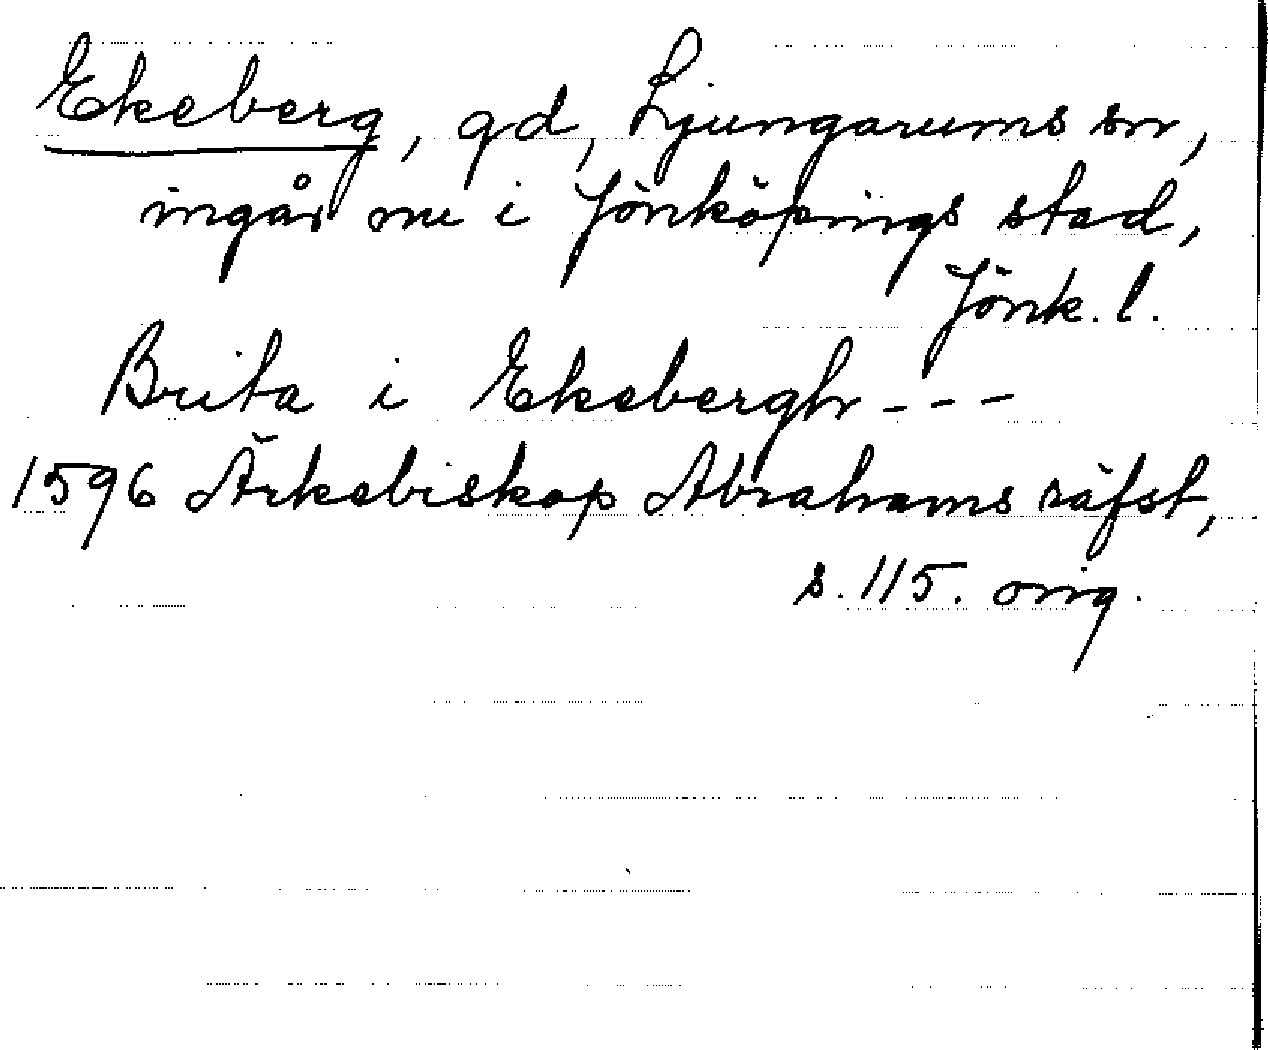 Ekeberg, gd, Ljungarums sn,
ingår nu i Jönköpings stad,
Jönk. l.
Brita i Ekebergh - - -
1596 Ärkebiskop Abrahams räfst,
s. 115. orig.